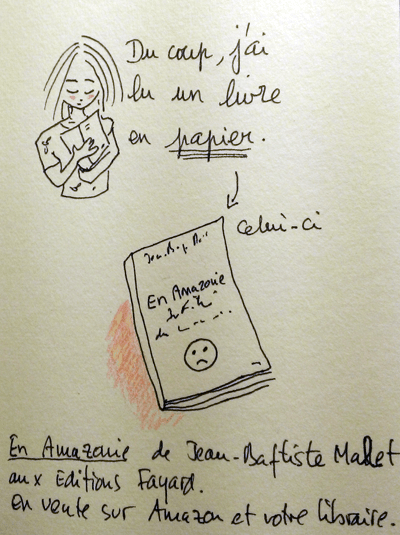 Du coup, j'ai
lu un livre
en papier.
Celui-ci
En Amazonie
En Amazonie de Jean-Baptiste Malet
aux Editions Fayard.
En vente sur Amazon et votre libraire.